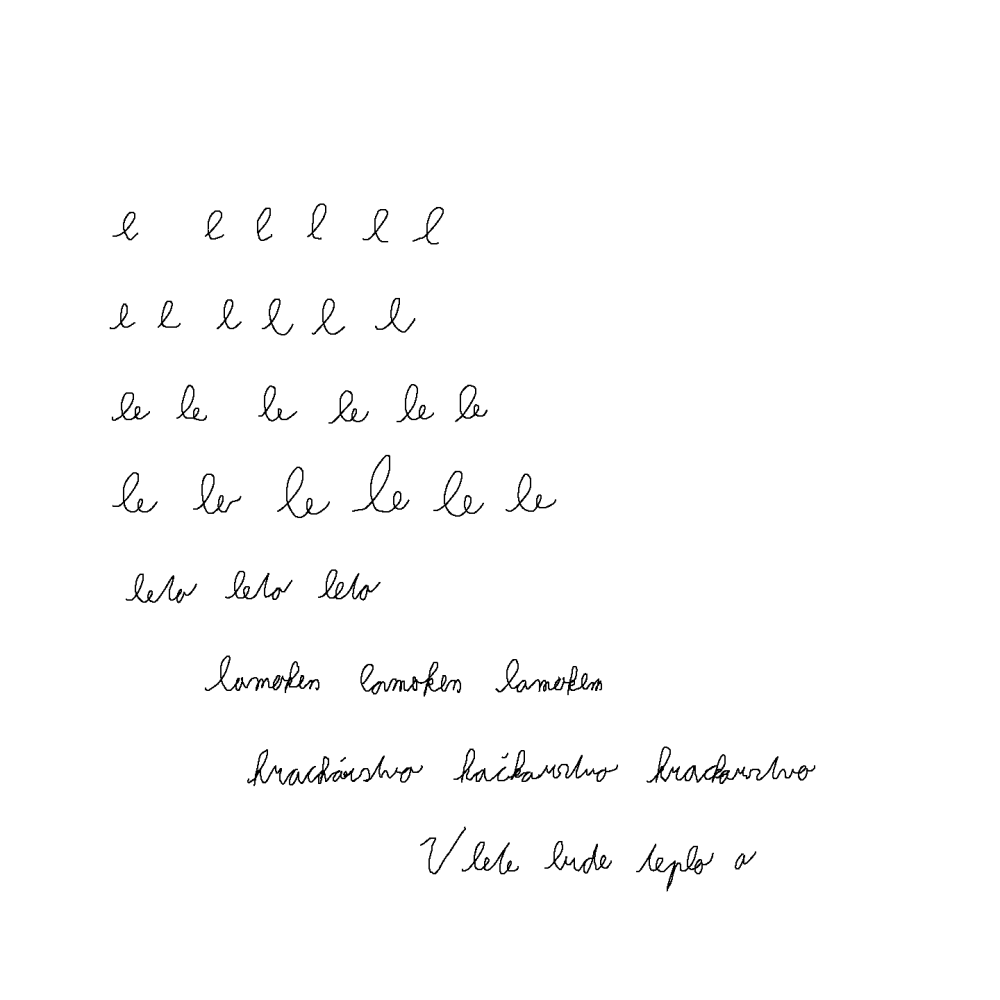 e e e l e l
e e e e e e
le le le le le le
le le le le le le
leto leto leto
lamoken lamoken lamokem
hračkárstvo hačkarstvo hračkarstvo
V lete bude teplo a